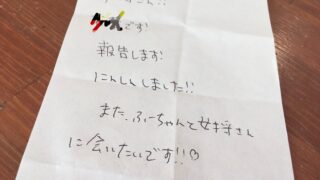 です
報告します
にんしんしました!!
また、ふーちゃんと女将さん
に会いたいです!!♡